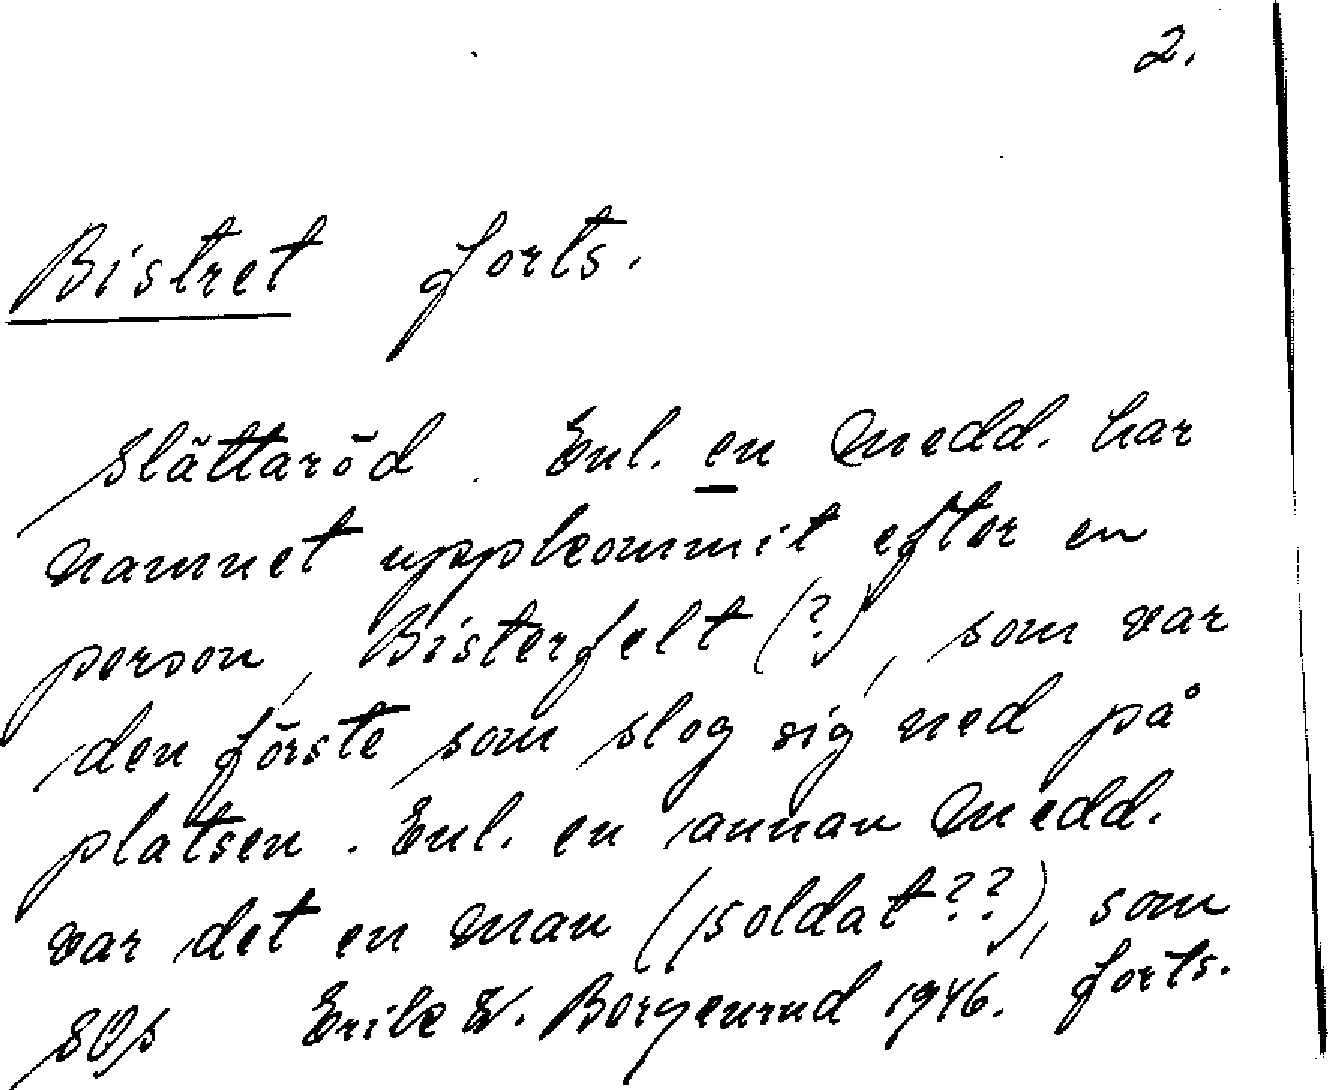 2.
Bistret forts.
Slättaröd. Enl. en medd. har
namnet uppkommit efter en
person, Bisterfelt (?), som var
den förste som slog sig ned på
platsen. Enl. en annan medd.
var det en man (soldat??), som
forts.
SOS Erik W. Bergenrud 1946.